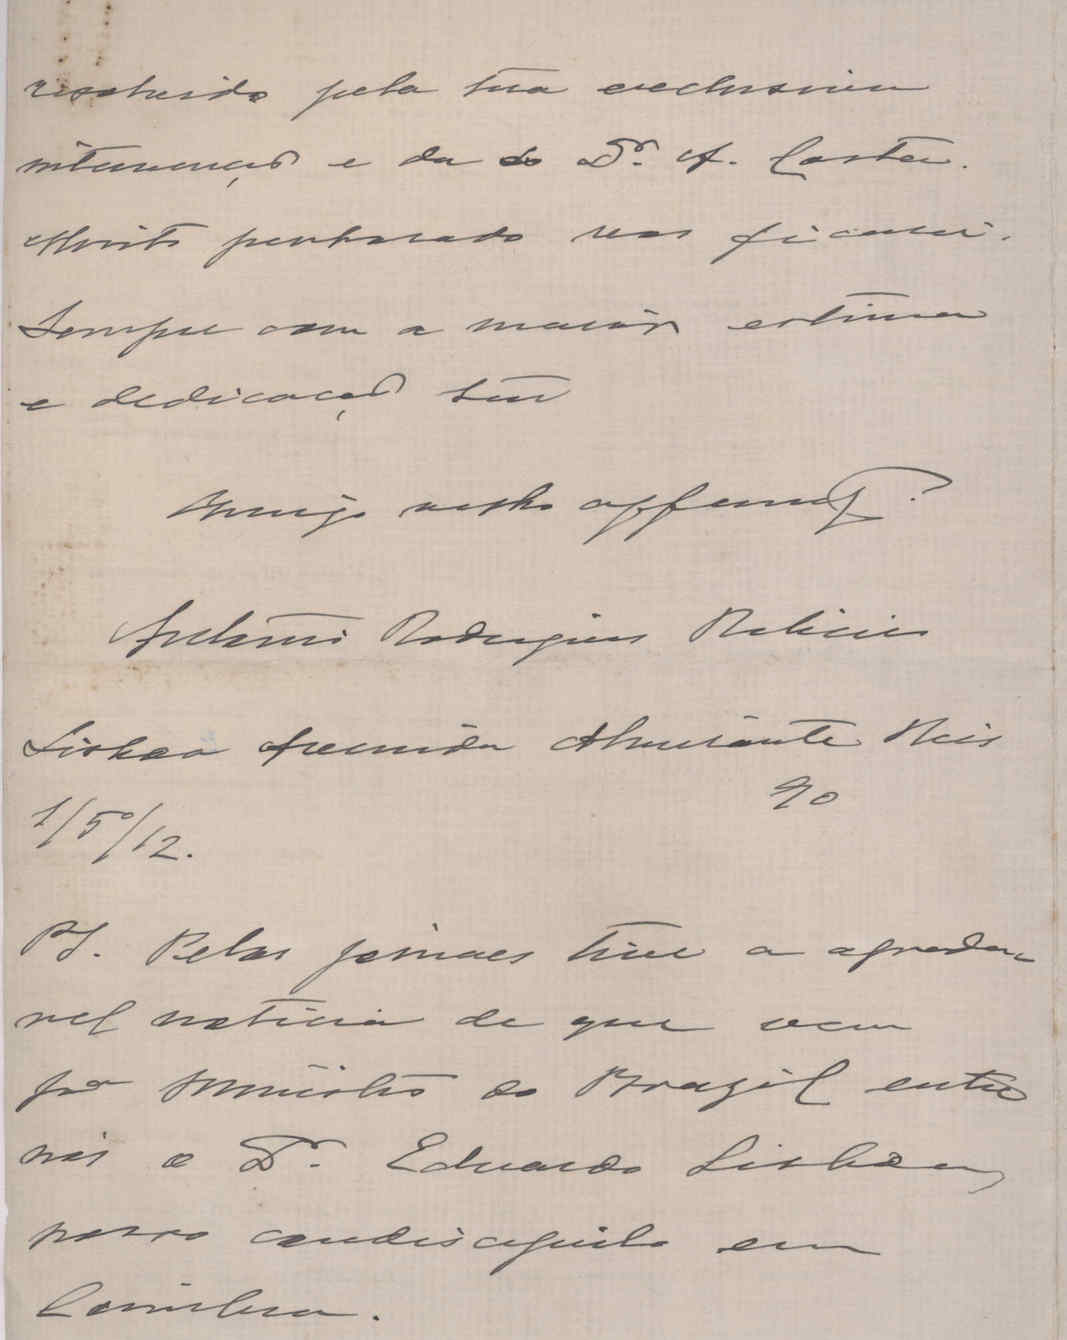 resolvido pela tua exclusiva
intervenção e da do Dr. A. Costa.
Muito penhorado vos ficarei.
Sempre com a maior estima
e dedicação sou
Amigo velho
Antonio Rodrigues
Lisboa Avenida Almirante Reis
90
1/5º/12.
PS. Pelos jornaes tive a agrada-
vel noticia de que vem
pª Ministro do Brazil entre
nós o Dr. Eduardo Lisboa,
nosso condiscipulo em
Coimbra.